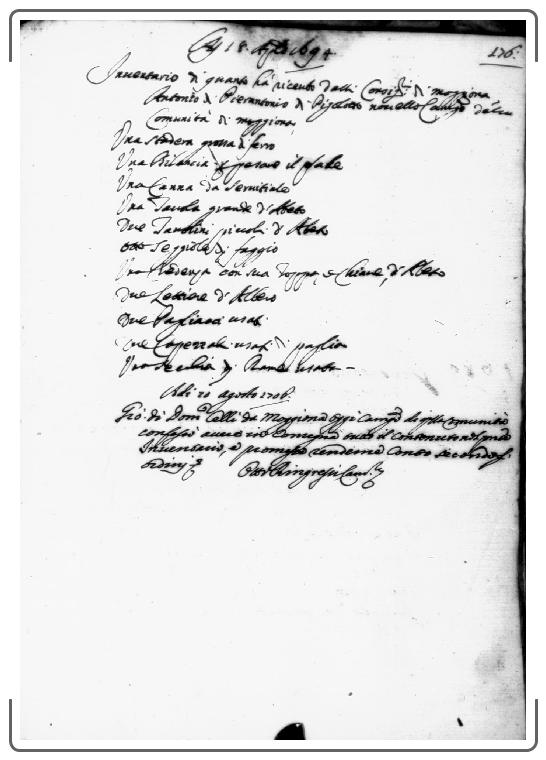 18 1694
176.
Inventario di quanto hà ricevuto dalli Consi:ri di moggiona
Antonio di Pierantonio di novello Camar:o della
Comunità di moggiona
Una Stadera grossa di ferro
Una Bilancia p pesare il sale
Una Canna da Servitiale
Una Tavola grande d'Abeto
Due Tavolini piccoli d'Abeto
otto Seggiole di faggio
Una Credenza con sua Toppa, e Chiave d'Abeto
Due Lettiere d'Albero
Due Pagliacci usati
Due Coperzole usati di paglia
Una Secchia di Rame usata
Adi 20 agosto 1706.
Gio: di Dom:co Celli da Moggiona oggi Camar:o di Comunità
confessò avere in consegna tutto il contenuto nel
Inventario, e promesso renderne conto secondo gl'
ordini